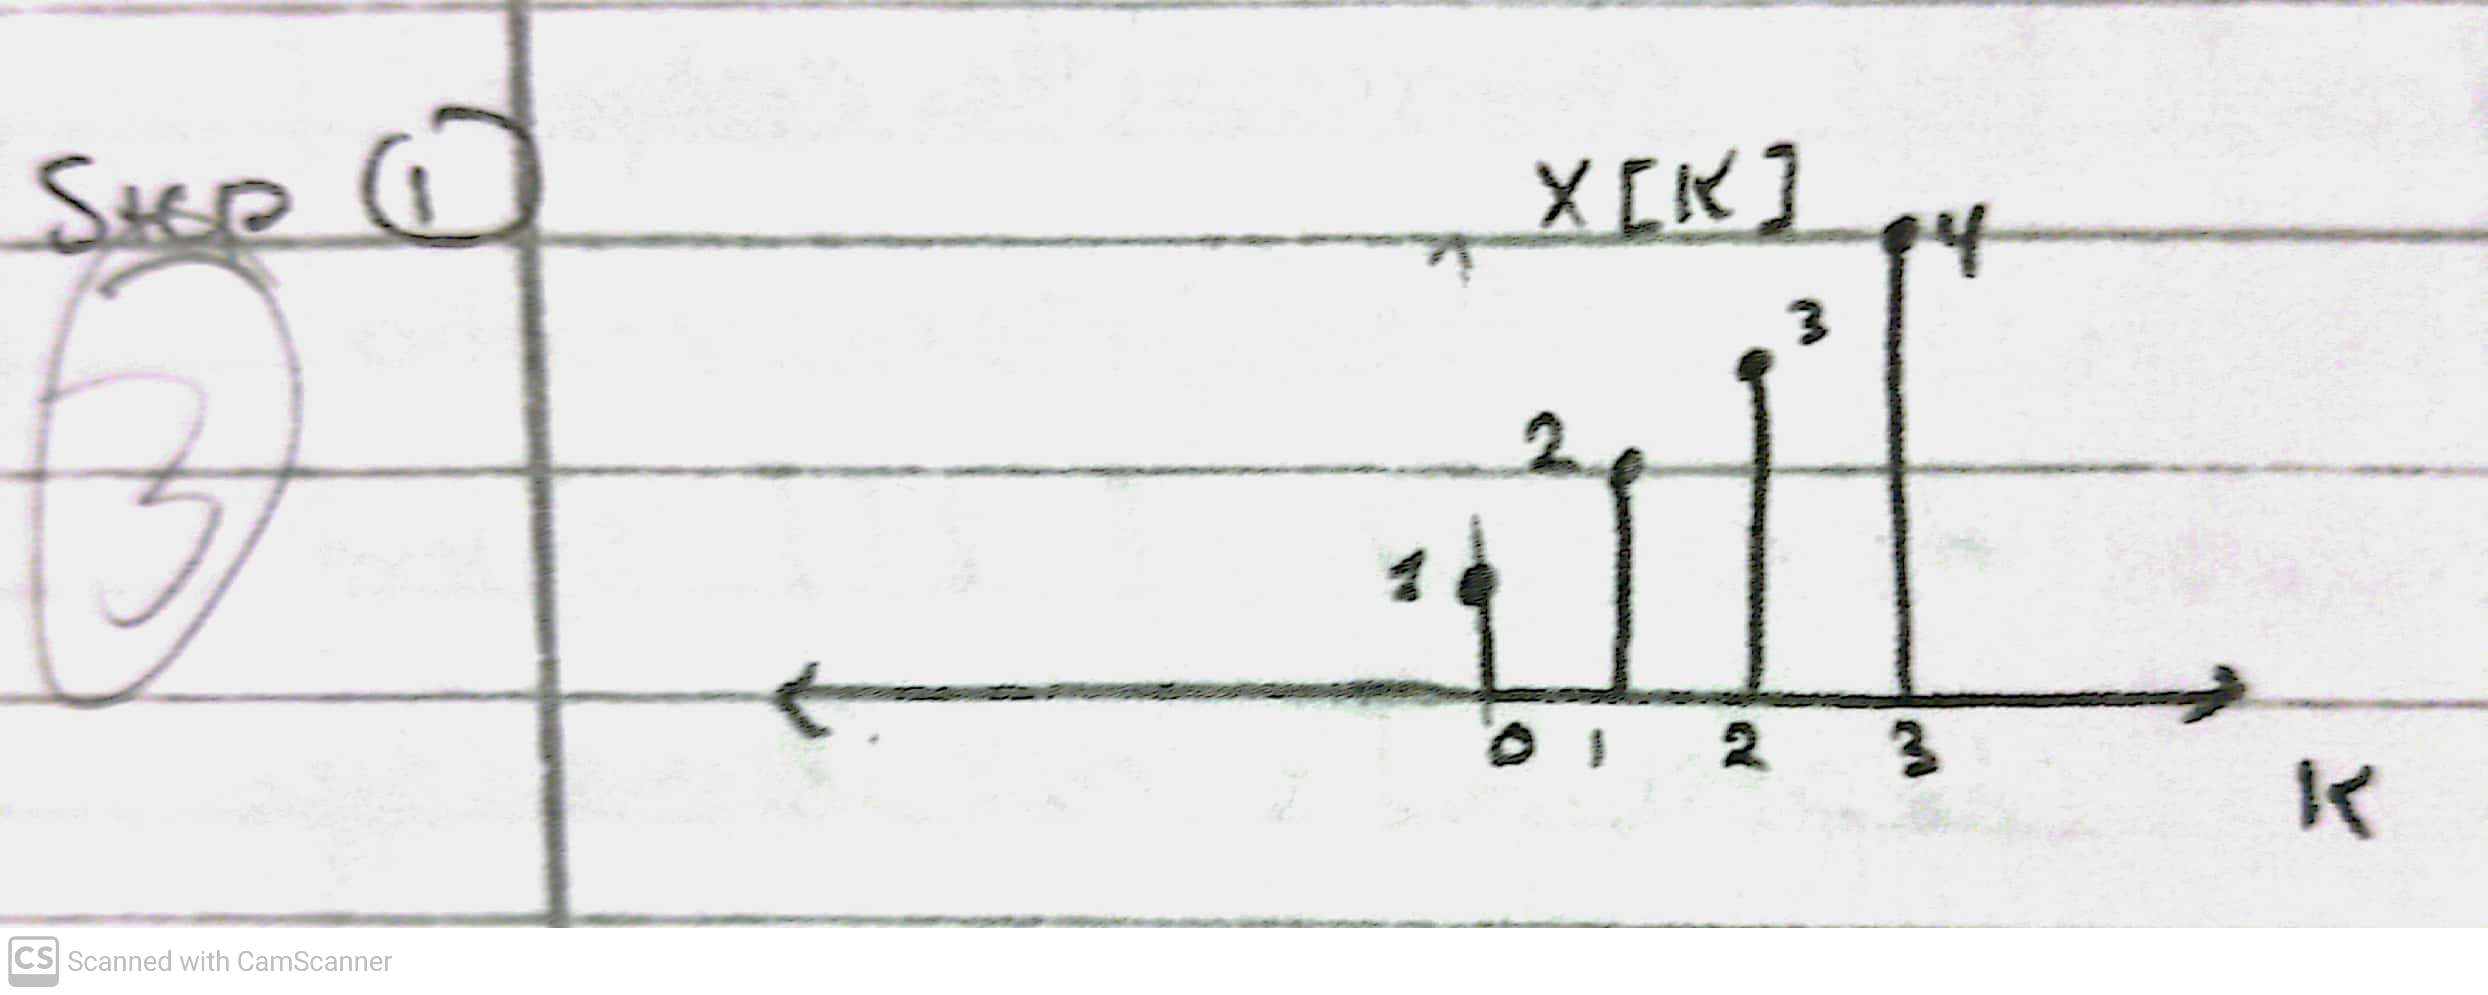 Step 1
X[K]
4
3
3
2
1
0 1 2 3
K
CS Scanned with CamScanner